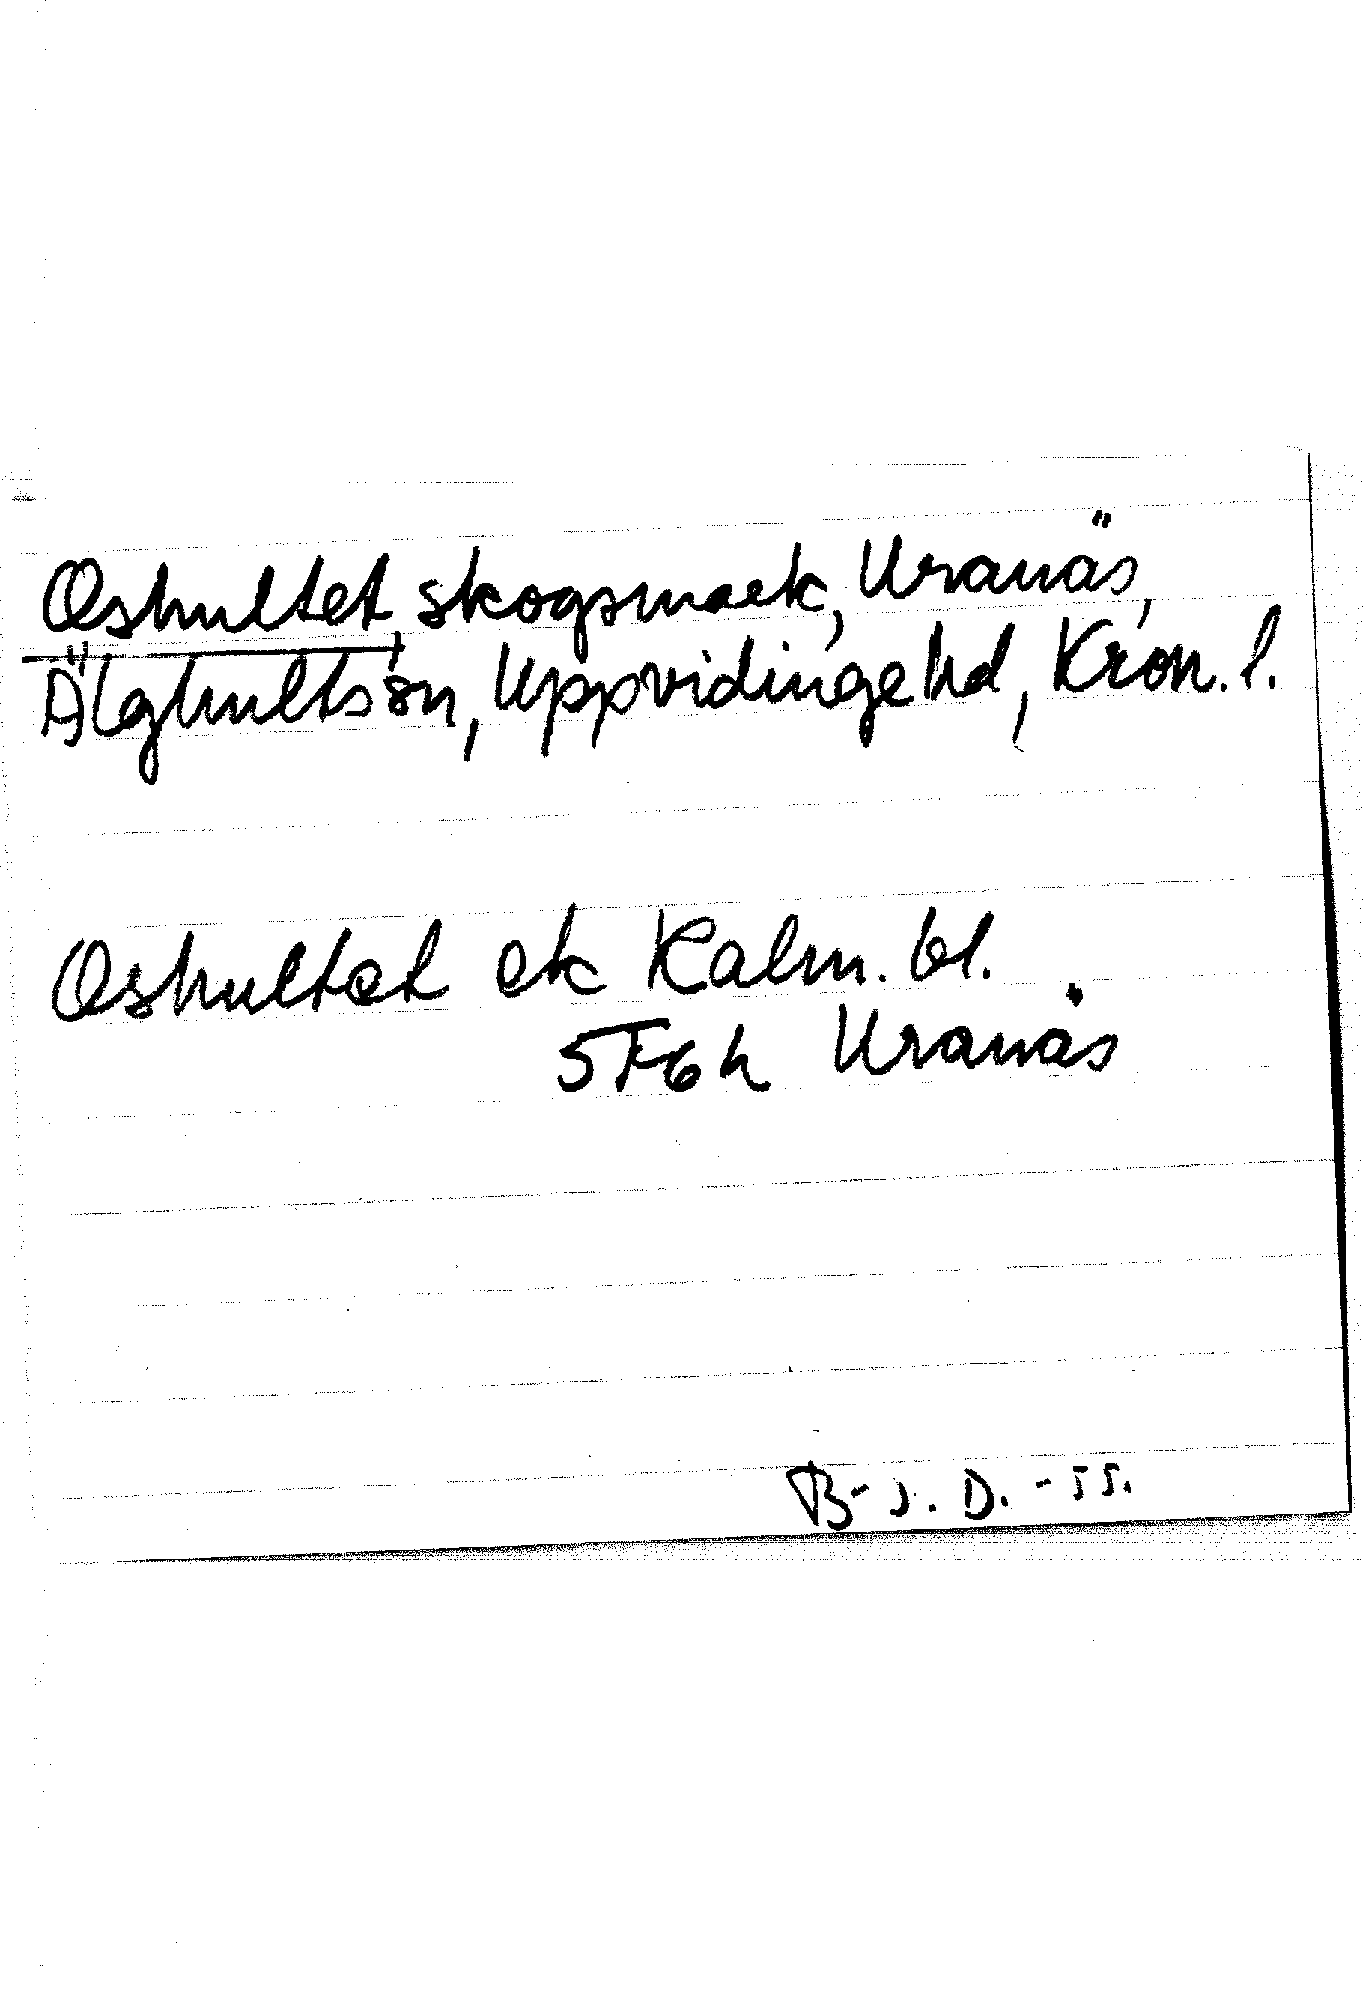 Oshultet, skogsmark, Uranäs,
Älghults sn, Uppvidinge hd, Kron. l.
Oshultet ek Kalm. bl.
5F6h Uranäs
B-J. D. -55.